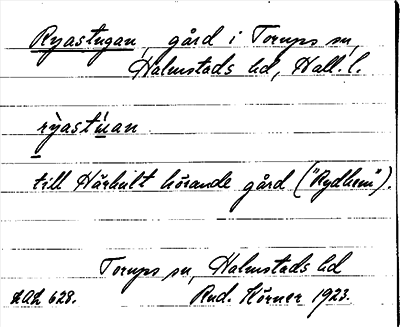 Ryastugan, gård i Torups sn,
Halmstads hd, Hall. l.
rỳast'uan
till Hårhult hörande gård ("Rydhem").
Torups sn, Halmstads hd
628. Rud. Körner 1923.